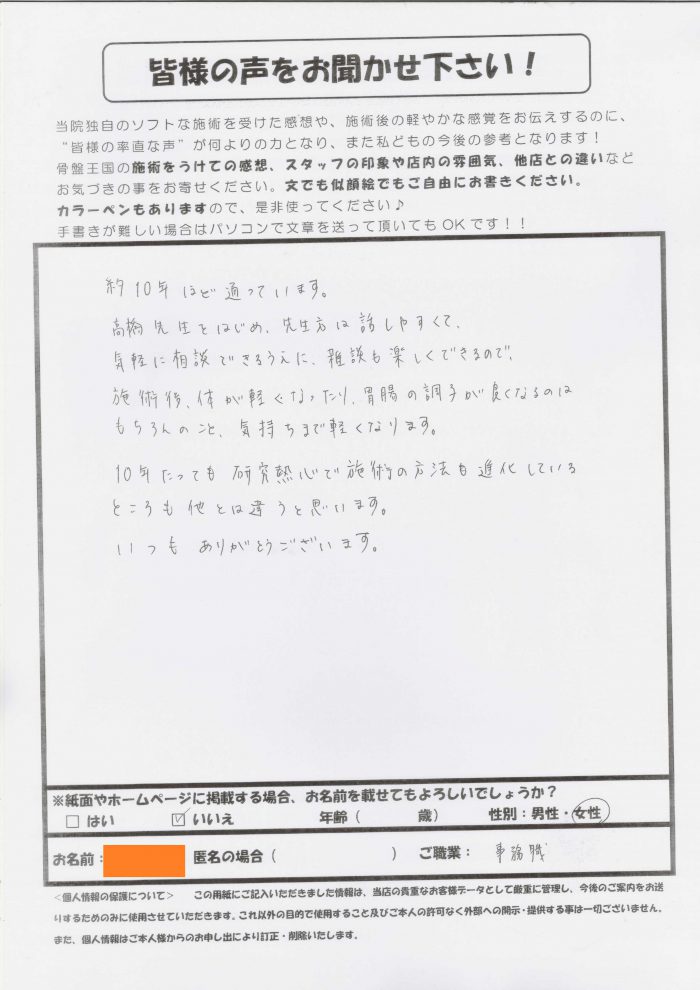 皆様の声をお聞かせ下さい！
当院独自のソフトな施術を受けた感想や、施術後の軽やかな感覚をお伝えするのに、
“皆様の率直な声”が何よりの力となり、また私どもの今後の参考となります！
骨盤王国の施術をうけての感想、スタッフの印象や店内の雰囲気、他店との違いなど
お気づきの事をお寄せください。文でも似顔絵でもご自由にお書きください。
カラーペンもありますので、是非使ってください♪
手書きが難しい場合はパソコンで文章を送って頂いてもOKです！！
約10年ほど通っています。
高橋先生をはじめ、先生方は話しやすくて、
気軽に相談できるうえに、雑談も楽しくできるので、
施術後、体が軽くなったり、胃腸の調子が良くなるのは
もちろんのこと、気持ちまで軽くなります。
10年たっても研究熱心で施術の方法も進化している
ところも他とは違うと思います。
いつもありがとうございます。
※紙面やホームページに掲載する場合、お名前を載せてもよろしいでしょうか？
□はい ☑いいえ 年齢（ 歳） 性別：男性・女性
お名前： 匿名の場合（ ） ご職業： 事務職
＜個人情報の保護について＞ この用紙にご記入いただきました情報は、当店の貴重なお客様データとして厳重に管理し、今後のご案内をお送
りするためのみに使用させていただきます。これ以外の目的で使用すること及びご本人の許可なく外部への開示・提供する事は一切ございません。
また、個人情報はご本人様からのお申し出により訂正・削除いたします。